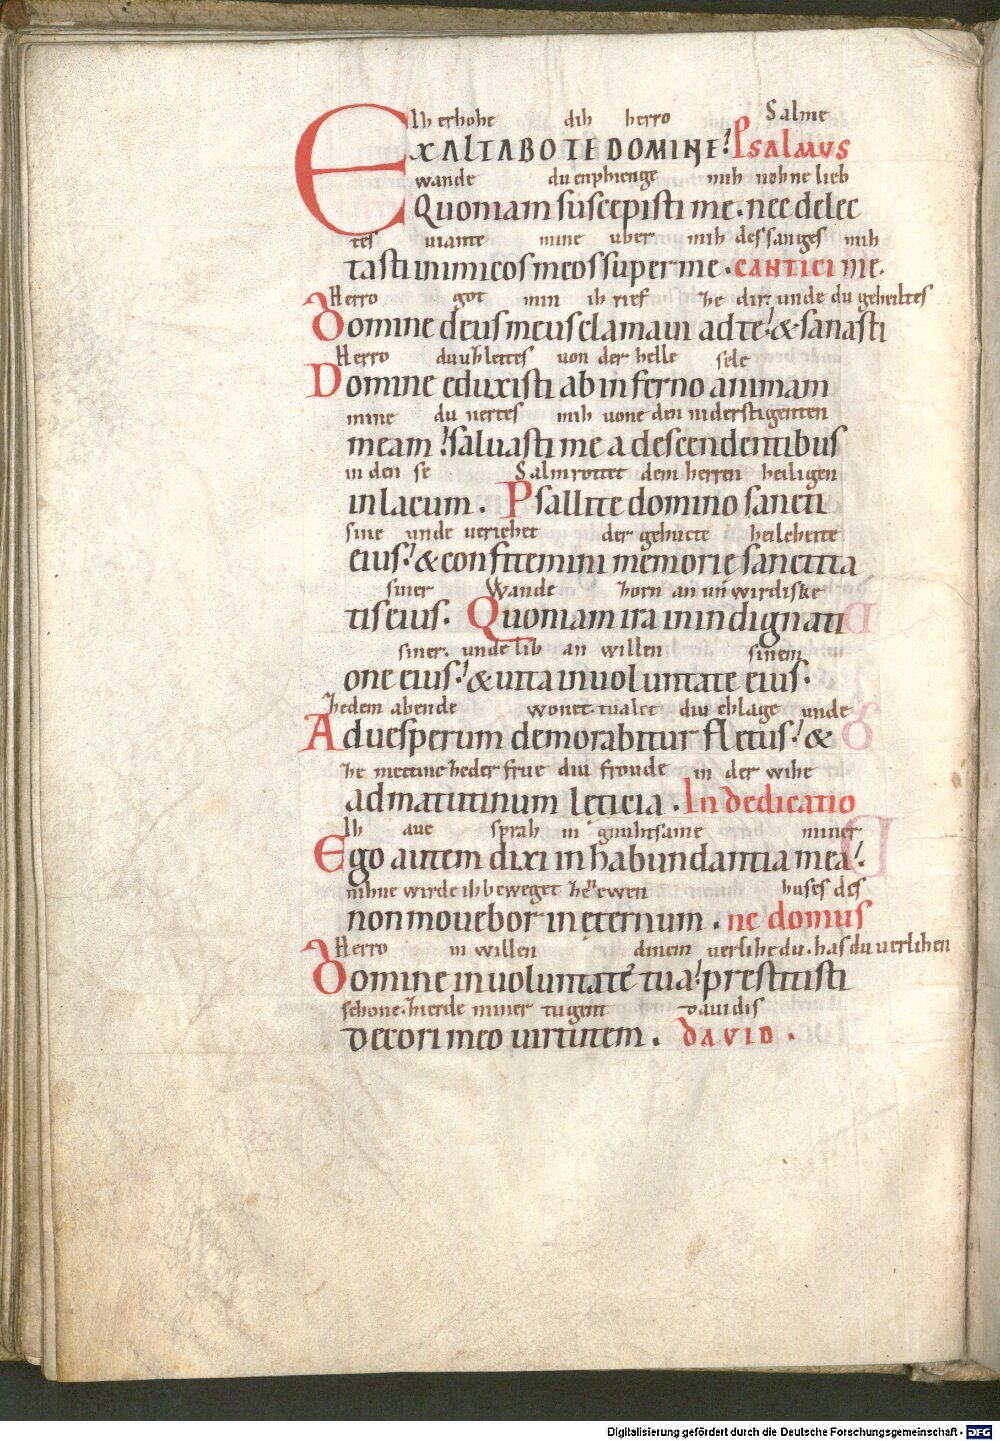 Ih erhohe dih herro Salme
EXALTABO TE DOMINE? Psalmus
wande du enphienge mih nohne lieb
Quoniam suscepisti me. nec delec
tes uiante mine uber mih des sanges mih
tasti inimicos meos super me. cantici me.
Herro got min ih rief he dir. unde du geheiltes
Domine deus meus clamaui ad te? & sanasti
Herro du uzlettes uon der helle sele
Domine eduxisti ab inferno animam
mine du nertes mih uone den niderstigenten
meam? saluasti me a descendentibus
in den se Salmrottet dem herren heiligen
in lacum. Psallite domino sancti
sine unde ueriehet der gehucte heilcheite
eius? & confitemini memorie sanctita
siner Wande zorn an un wirdiske
tis eius. Quoniam ira in indignati
siner. unde lib an willen sinem
one eius? & uita in uoluntate eius.
zedem abende wonet. tualet diu chlage unde
Ad uesperum demorabitur fletus? &
ze mettine zeder frue diu froude in der wihe
ad matutinum leticia. In dedicatio
Ih aue sprah in gnuhtsame miner
Ego autem dixi in habundantia mea?
nihne wirde ih beweget ze ewen huses des
non mouebor in eternum. ne domus
Herro in willen dinem uerlihe du. has du uerlihen
Domine in uoluntate tua? prestitisti
schone. zierde miner tugent Dauidis
decori meo uirtutem. david.
Digitalisierung gefördert durch die Deutsche Forschungsgemeinschaft - DFG